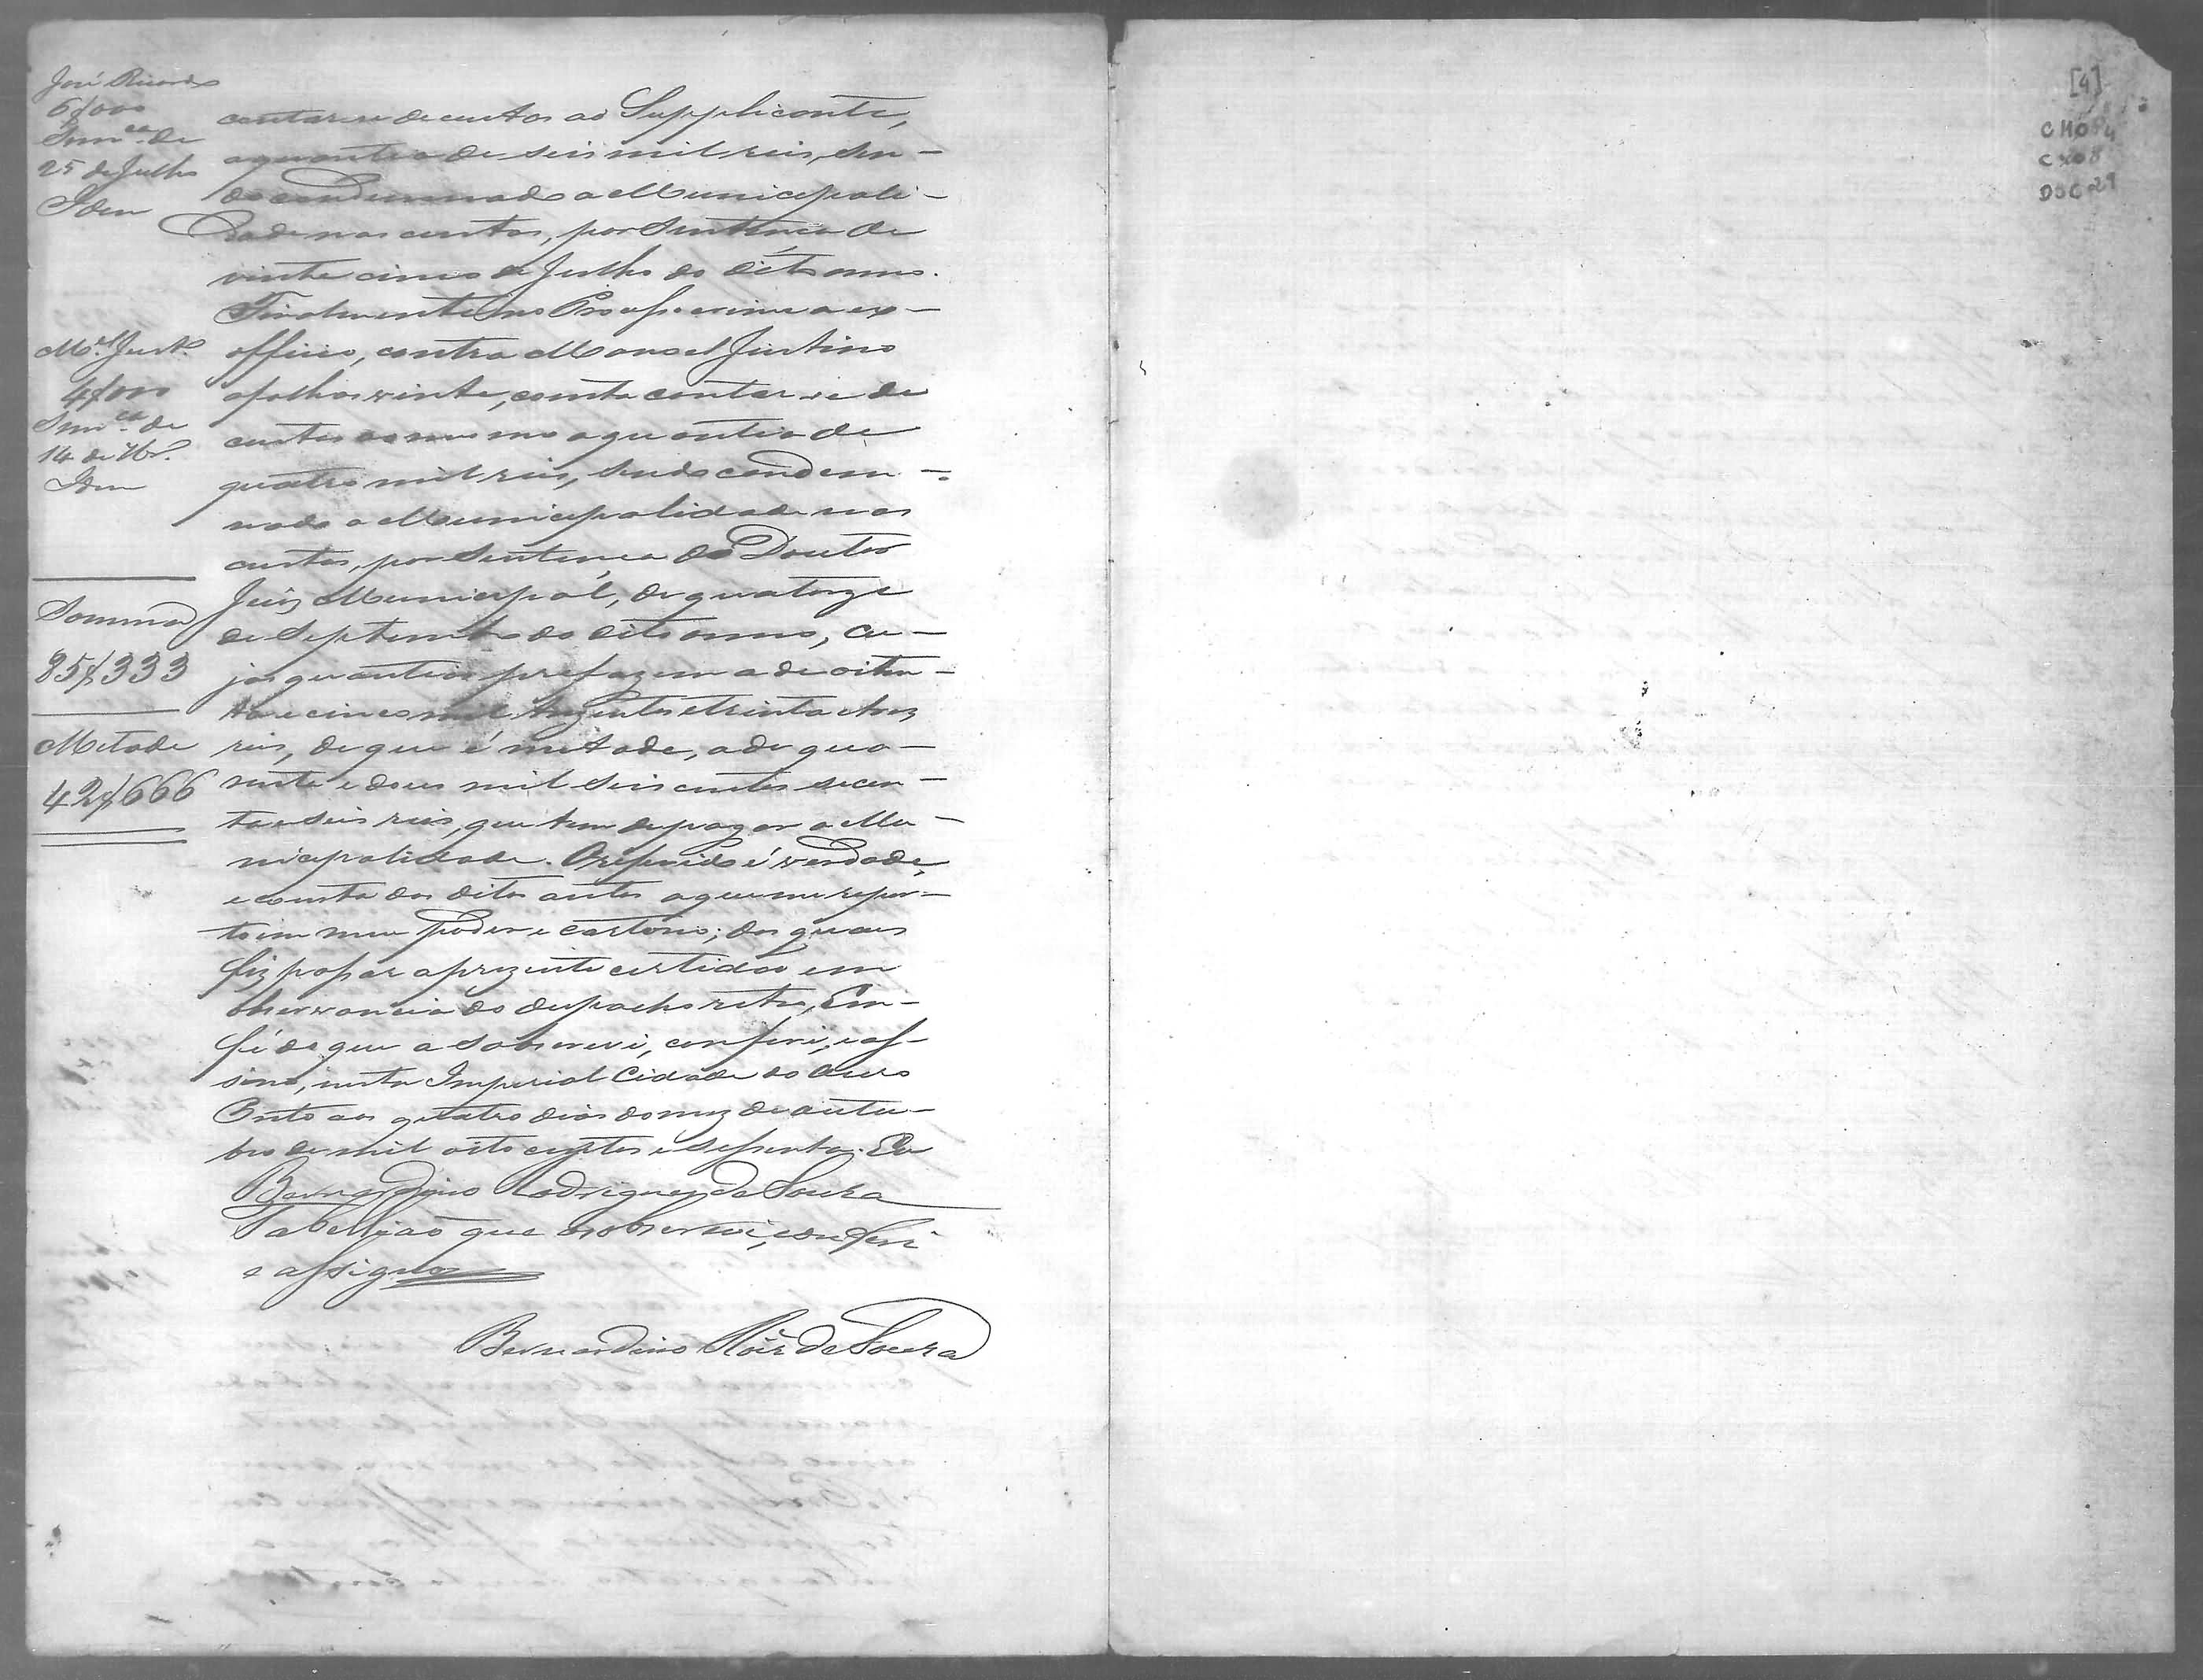 José Ricardo
6$000
Senn.ca de
25 de Julho
Idem
contar-se de custas ao Supplicante,
a quantia de seis mil reis, sen-
do condemnada a Municipali-
dade nas custas, por Sentença de
vinte cinco de Julho do dito anno.
Finalmente no Processo crime a ex-
officio, contra Manoel Justino
a folhas vinte, consta contar-se de
custas ao mesmo a quantia de
quatro mil reis, sendo condem-
nada a Municipalidade nas
custas, por Sentença do Doutor
Juiz Municipal, de quatorze
de Septembro do dito anno, cu-
jas quantias prefazem a de oiten-
ta e cinco mil trezentos e trinta e trez
reis, de que é metade, a de qua-
renta e dous mil seis centos secen-
ta e seis reis, que tem de pagar a Mu-
nicipalidade. O referido é verdade,
e consta dos ditos autos a que me repor-
to em meu poder e cartorio; dos quaes
fiz passar a prezente certidão em
observancia do despacho retro, Em
fé do que a sobscrevi, conferi, e as-
sino, nesta Imperial Cidade do Ouro
Preto aos quatro dias do mez de outu-
bro de mil oito centos e sessenta. Eu
Bernardino Rodrigues de Souza
Tabellião que a sobscrevi, conferi
e assigno
Bernardino Roiz de Souza
M.el Just.o
4$000
Senn.ca de
14 de 7br.
Idem
Somma
85$333
Metade
42$666
[4]
CM054
CX08
DOC29